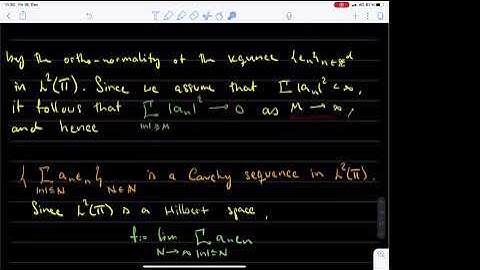 by the ortho-normality of the sequence {eₙ}ₙ∈ℤᵈ
in L²(Π). Since we assume that Σ|aₙ|² < ∞,
it follows that Σ_{|n|≥M} |aₙ|² → 0 as M → ∞,
and hence
{ Σ_{|n|≤N} aₙeₙ }_{N∈ℕ} is a Cauchy sequence in L²(Π).
Since L²(Π) is a Hilbert space,
f := lim_{N→∞} Σ_{|n|≤N} aₙeₙ